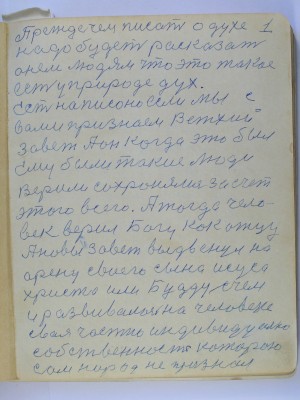 Прежде чем писать о духе 1
надо будет рассказат
о нем людям что это такое
ест у природе дух.
Ест написоно если мы с
вами признаем Ветхий
Завет А он когда это был
Ему были такие люди
верили сохроняли за счет
этого всего. А тогда чело-
век верил Богу как отцу
А новый Завет выдвенул на
арену своего сына исуса
христа или Будду с чем
и развивалося на человеке
свая часть индивидуално
собственность которою
сам народ не признал